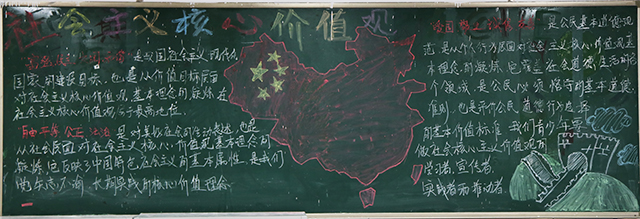 社会主义核心价值观
富强 民主 文明 和谐 是我国社会主义现代化
国家的建设目标，也是从价值目标层面
对社会主义核心价值观基本理念的凝练 在
社会主义核心价值观居于最高地位
自由 平等 公正 法治 是对美好社会的生动表述，也是
从社会层面对社会主义核心价值观基本理念的
凝炼 它反映了中国特色社会主义的基本属性，是我们
长期实践的核心价值理念
是公民基本道德规
范 是从个人行为层面对社会主义核心价值观基
本理念的凝炼 它覆盖社会道德生活的各
个领域 是公民必须恪守的基本道德
准则，也是评价公民道德行为选择
的基本价值标准 我们青少年要
做社会主义核心价值观的
学习者 宣传者
实践者和推动者